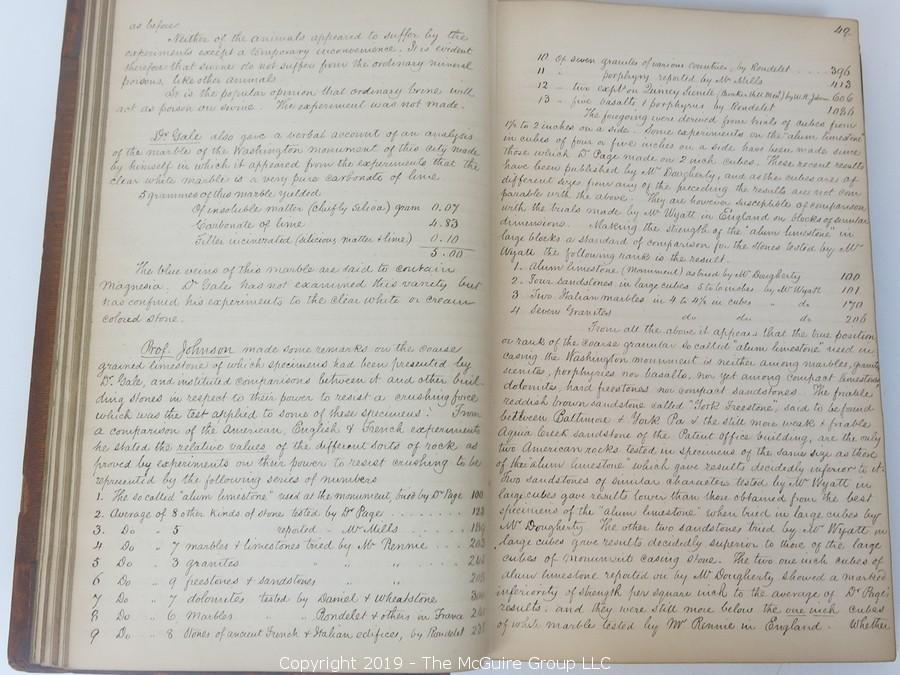 as before.
Neither of the animals appeared to suffer by the
experiments except a temporary inconvenience. It is evident
therefore that swine do not suffer from the ordinary mineral
poisons, like other animals.
Do is the popular opinion that ordinary brine will
act as poison on swine. The experiment was not made.
Dr Gale also gave a verbal account of an analysis
of the marble of the Washington monument of this city made
by himself in which it appeared from the experiments that the
clear white marble is a very pure carbonate of lime
5 grammes of this marble yielded
Of insoluble matter (chiefly Silica) gram 0.07
Carbonate of lime 4.83
Filter incinerated (silicious matter & lime) 0.10
5.00
The blue veins of this marble are said to contain
Magnesia. Dr Gale has not examined this variety but
has confined his experiments to the clear white or cream
colored stone.
Prof. Johnson made some remarks on the coarse
grained limestone of which specimens had been presented by
Dr Gale, and instituted comparisons between it and other buil-
ding stones in respect to their power to resist a crushing force
which was the test applied to some of these specimens. From
a comparison of the American, English & French experiments
he stated the relative values of the different sorts of rock as
proved by experiments on their power to resist crushing to be
represented by the following series of numbers
1. The so called "alum limestone" used as the monument, tried by Dr Page 100
2. Average of 8 other kinds of stone tested by Dr Page
3. Do " 5 reported " Mr Mills
4 Do " 7 marbles & limestones tried by Mr Rennie
5 Do " 3 granites " "
6 Do " 9 freestones & sandstones " "
7 Do " 7 dolomites tested by Daniel & Wheatstone
8 Do " 6 Marbles " " Rondelet & others in France
9 Do " 8 Stones of ancient French & Italian edifices, by Rondelet
49
10 Of seven granites of various countries, by Rondelet 396
11 " porphyry reported by Mr Mills 413
12 – two expts on Quincy Sienite (Bunker Hill Mont) by W.R. Johnson 606
13 – five basalts & porphyrys by Rondelet 1086
The foregoing were derived from trials of cubes from
1½ to 2 inches on a side. Some experiments on the "alum limestone"
in cubes of four or five inches on a side have been made since
those which Dr Page made on 2 inch cubes. These recent results
have been published by Mr Dougherty, and as the cubes are of
different sizes from any of the preceding the results are not com-
parable with the above. They are however susceptible of comparison
with the trials made by Mr Wyatt in England on blocks of similar
dimensions. Making the strength of the "alum limestone" in
large blocks a standard of comparison for the stones tested by Mr
Wyatt the following rank is the result.
1. Alum limestone (Monument) as tried by Mr Dougherty 100
2. Four sandstones in large cubes 5 to 6 inches by Mr Wyatt 101
3. Two Italian marbles in 4 to 4½ in cubes " do 170
4 Seven Granites do do do 206
From all the above it appears that the true position
or rank of the coarse granular so called "alum limestone" used in
casing the Washington monument is neither among marbles, granites
sienites, porphyries nor basalts, nor yet among compact limestones
dolomites, hard freestones nor compact sandstones. The friable
reddish brown sandstone called "York Freestone", said to be found
between Baltimore & York Pa & the still more weak & friable
Aquia Creek sandstone of the Patent Office building, are the only
two American rocks tested in specimens of the same size as them
of the "alum limestone" which gave results decidedly inferior to it.
Two sandstones of similar characters tested by Mr Wyatt in
large cubes gave results lower than those obtained from the best
specimens of the "alum limestone" when tried in large cubes by
Mr Dougherty. The other two sandstones tried by Mr Wyatt in
large cubes gave results decidedly superior to those of the large
cubes of monument casing stone. The two one inch cubes of
alum limestone reported on by Mr Dougherty showed a marked
inferiority of strength per square inch to the average of Dr Page's
results: and they were still more below the one inch cubes
of white marble tested by Mr Rennie in England. Whether
Copyright 2019 - The McGuire Group LLC